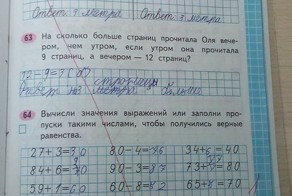 Ответ: 3 метра Ответ: 3 метра
63 На сколько больше страниц прочитала Оля вече-
ром, чем утром, если утром она прочитала
9 страниц, а вечером — 12 страниц?
12-9=3
Ответ на больше
64 Вычисли значения выражений или заполни про-
пуски такими числами, чтобы получились верные
равенства.
27+3=30 80-4=76 34+6=40
84+6= 90-3=87 73+ =80
59+1=60 60-8=52 65+ =70